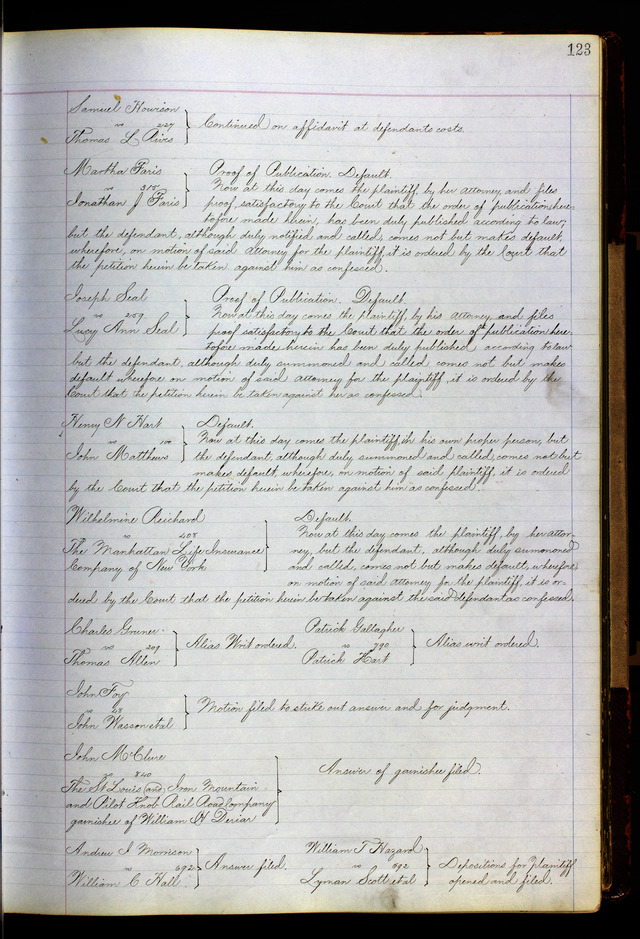 123
Samuel Howison
vs 227 Continued on affidavit at defendants costs.
Thomas L
Martha Faris Proof of Publication. Default.
vs 315 Now at this day comes the plaintiff, by her attorney, and files
Jonathan J Faris proof, satisfactory to the Court that the order of publication here-
tofore made herein, has been duly published according to law;
but the defendant, although duly notified and called, comes not but makes default,
wherefore, on motion of said attorney for the plaintiff, it is ordered by the Court that
the petition herein be taken against him as confessed.
Joseph Seal Proof of Publication. Default.
vs 259 Now at this day comes the plaintiff, by his attorney, and files
Lucy Ann Seal proof satisfactory to the Court that the order of publication here-
tofore made herein has been duly published according to law
but the defendant, although duly summoned and called comes not but makes
default wherefore on motion of said attorney for the plaintiff, it is ordered by the
Court that the petition herein be taken against her as confessed.
Henry N Hart Default.
vs 100 Now at this day comes the plaintiff, in his own proper person, but
John Matthews the defendant, although duly summoned and called, comes not but
makes default, wherefore, on motion of said plaintiff, it is ordered
by the Court that the petition herein be taken against him as confessed.
Wilhelmine Reichard Default.
vs 408 Now at this day comes the plaintiff, by her attor-
The Manhattan Life Insurance ney, but the defendant, although duly summoned
Company of New York and called, comes not but makes default, wherefore
on motion of said attorney for the plaintiff, it is or-
dered by the Court that the petition herein be taken against the said defendant as confessed.
Charles Gruner. Patrick Gallagher
vs 209 Alias Writ ordered. vs 790 Alias writ ordered.
Thomas Allen Patrick Hart
John Foy
vs 28 Motion filed to strike out answer and for judgment.
John Wasson et al
John McClure
vs 840 Answer of garnishee filed.
The St Louis and Iron Mountain
and Pilot Knob Rail Road Company
garnishee of William H
Andrew I Morrison William T Hazard
vs 692 Answer filed. vs 892 Depositions for Plaintiff
William C Hall Lyman Scott et al opened and filed.